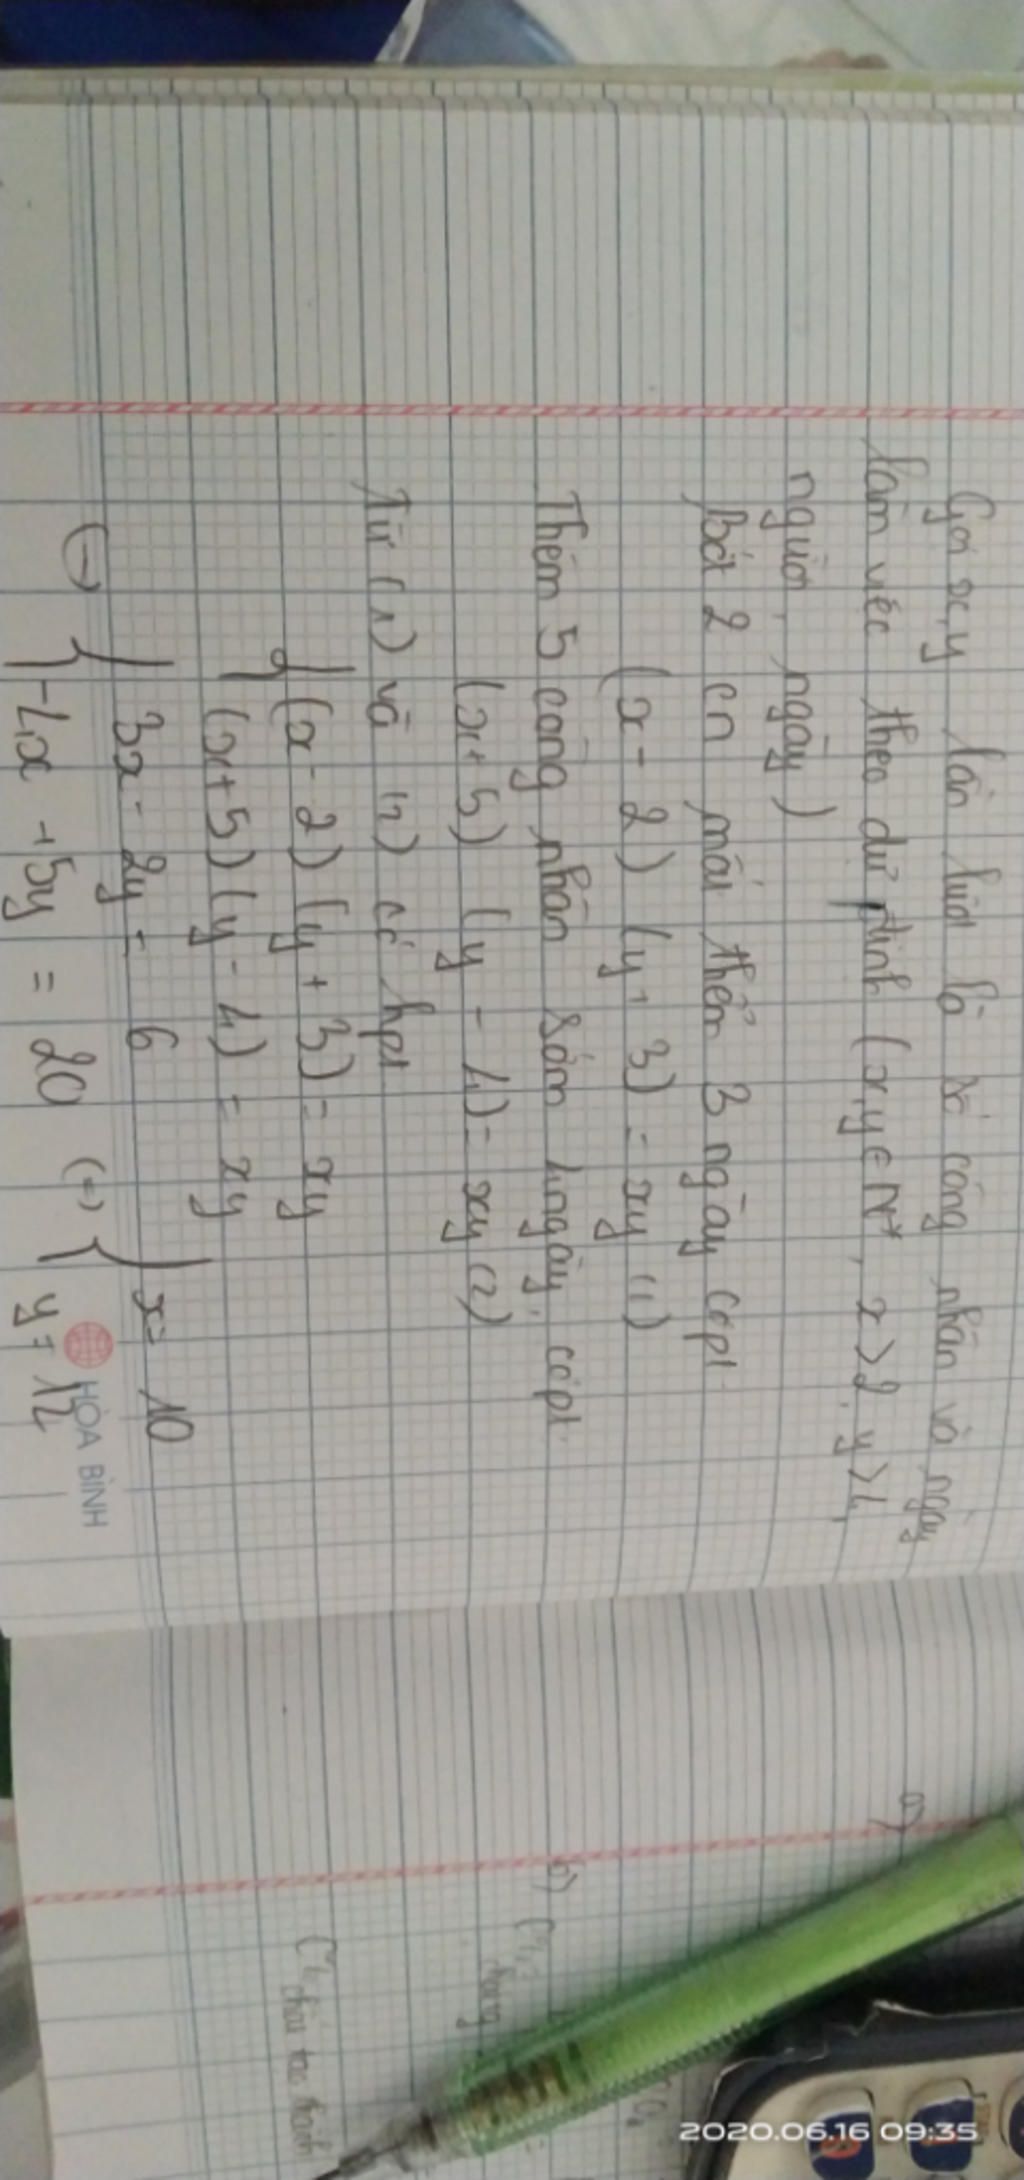 Gọi x, y lần lượt là số công nhân và ngày
làm việc theo dự định (x, y ∈ N*, x > 2, y > 4,
người, ngày)
bớt 2 cn mất thêm 3 ngày có pt
(x - 2) (y + 3) = xy (1)
Thêm 5 công nhân sớm 4 ngày, có pt
(x + 5) (y - 4) = xy (2)
Từ (1) và (2) có hpt
{ (x - 2) (y + 3) = xy
(x + 5) (y - 4) = xy
(=) { 3x - 2y = 6
-4x + 5y = 20 (=) { x = 10
y = 12
HÒA BÌNH
a)
chất tạo thành
2020.06.16 09:35